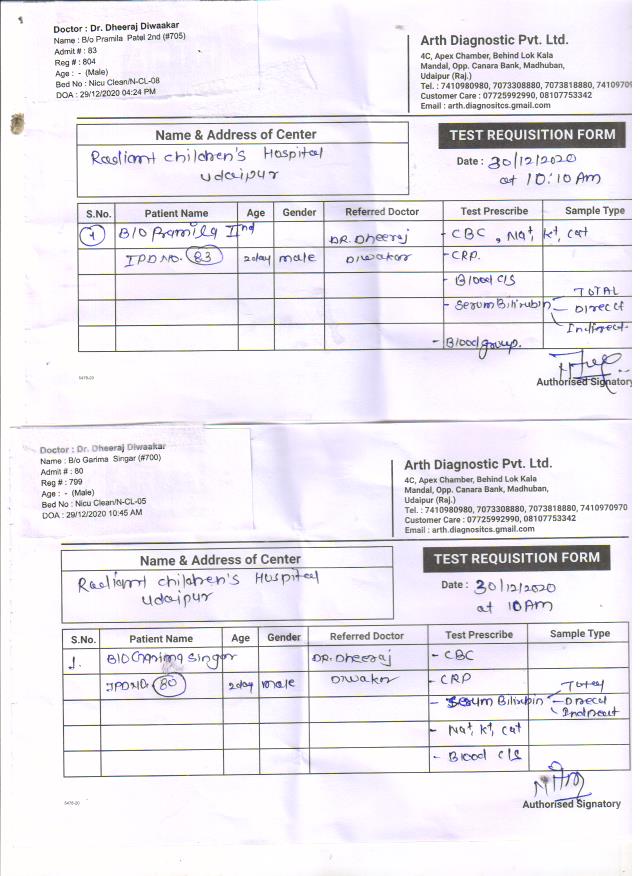 Doctor : Dr. Dheeraj Diwaakar
Name : B/o Pramila Patel 2nd (#705)
Admit # : 83
Reg # : 804
Age : - (Male)
Bed No : Nicu Clean/N-CL-08
DOA : 29/12/2020 04:24 PM
Arth Diagnostic Pvt. Ltd.
4C, Apex Chamber, Behind Lok Kala
Mandal, Opp. Canara Bank, Madhuban,
Udaipur (Raj.)
Tel. : 7410980980, 7073308880, 7073818880, 74109709
Customer Care : 07725992990, 08107753342
Email : arth.diagnositcs.gmail.com
Name & Address of Center
Radiant children's Hospital
Udaipur
TEST REQUISITION FORM
Date : 30/12/2020
at 10:10Am
S.No. Patient Name Age Gender Referred Doctor Test Prescribe Sample Type
1 B/O Pramila IInd DR. Dheeraj - CBC, Na+, K+, Ca+
IPD NO. 83 2day male Diwakar - CRP.
- Blood C/S
- Serum Bilirubin TOTAL
Direct
Indirect
- Blood group.
Authorised Signatory
5478-20
Doctor : Dr. Dheeraj Diwaakar
Name : B/o Garima Singar (#700)
Admit # : 80
Reg # : 799
Age : - (Male)
Bed No : Nicu Clean/N-CL-05
DOA : 29/12/2020 10:45 AM
Arth Diagnostic Pvt. Ltd.
4C, Apex Chamber, Behind Lok Kala
Mandal, Opp. Canara Bank, Madhuban,
Udaipur (Raj.)
Tel. : 7410980980, 7073308880, 7073818880, 7410970970
Customer Care : 07725992990, 08107753342
Email : arth.diagnositcs.gmail.com
Name & Address of Center
Radiant children's Hospital
Udaipur
TEST REQUISITION FORM
Date : 30/12/2020
at 10Am
S.No. Patient Name Age Gender Referred Doctor Test Prescribe Sample Type
1. B/O Garima Singar DR. Dheeraj - CBC
IPD NO. 80 2day male Diwakar - CRP
- Serum Bilirubin Total
Direct
Indirect
- Na+, K+, Ca+
- Blood C/S
Authorised Signatory
5478-20